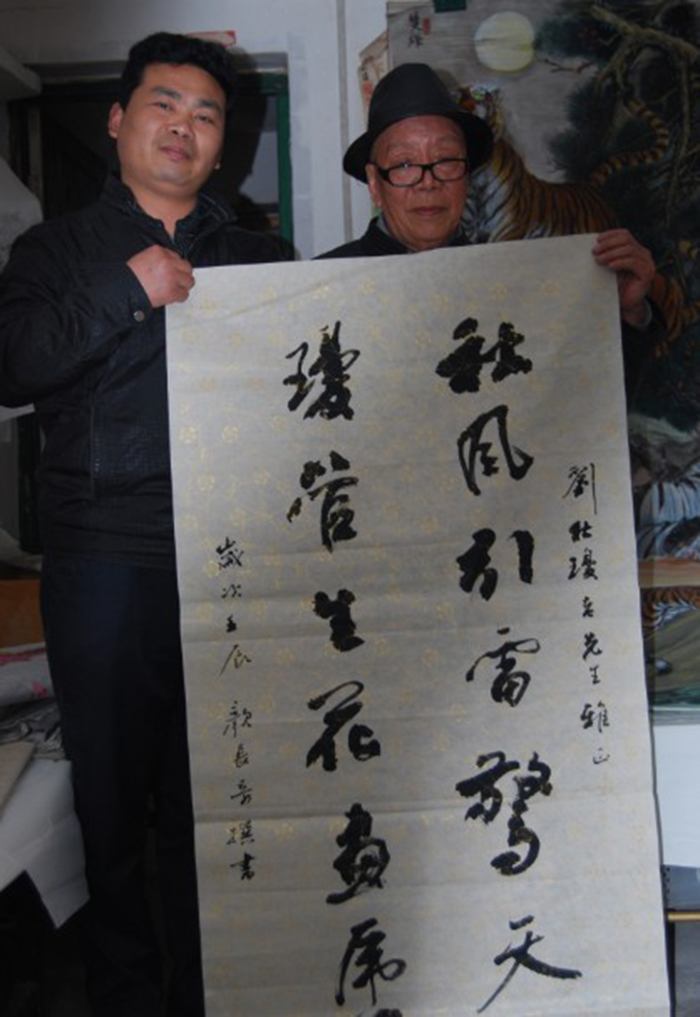 劉社瓊老先生雅正
社風引雷驚天
瓊管生花畫虎
歲次壬辰 顏長撰書